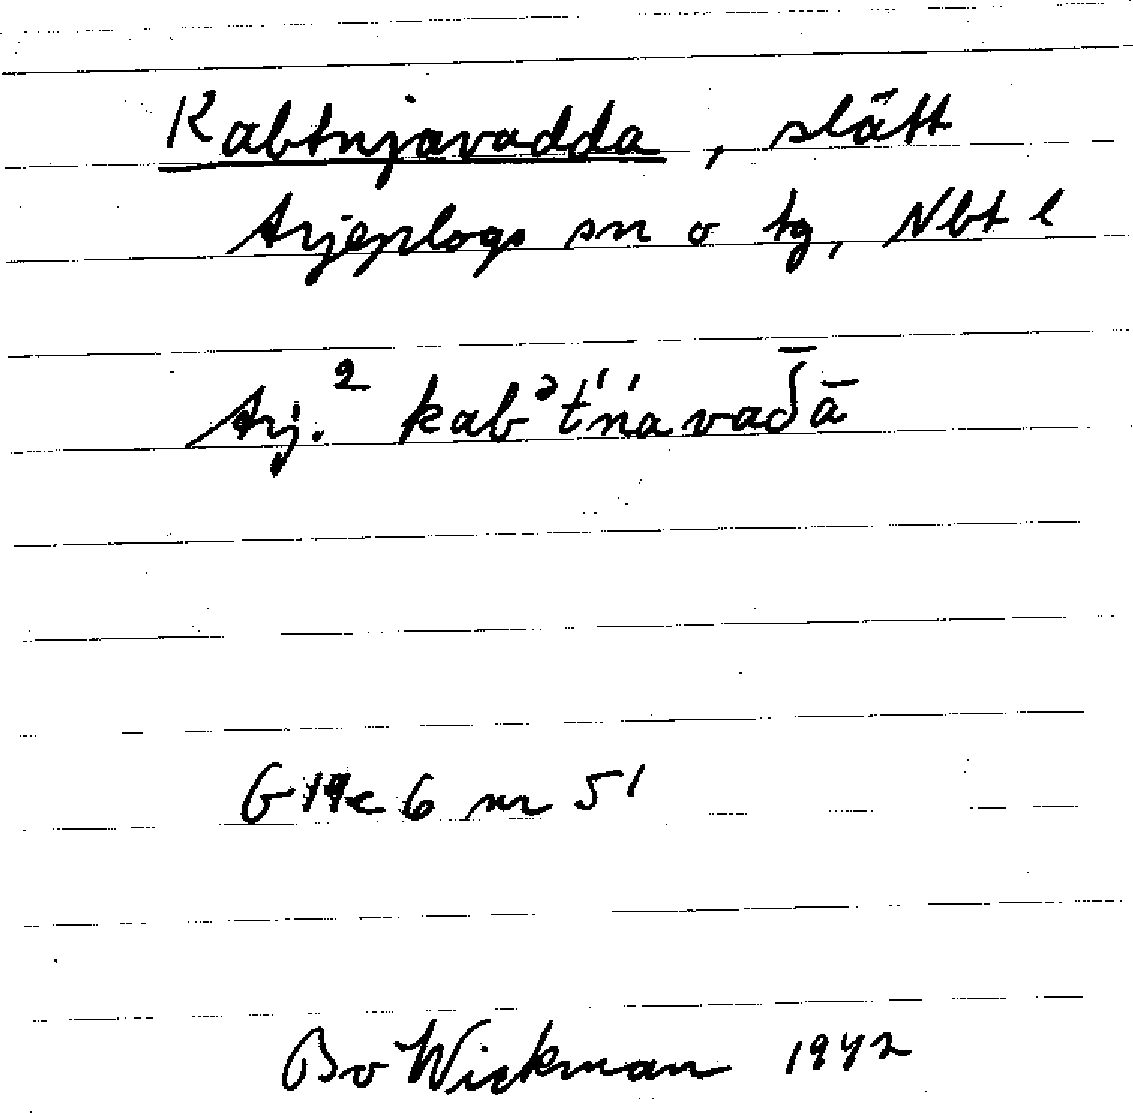 Kabtnjavadda, slått
Arjeplogs sn o tg, Nbt l
Arj.² kabᵊt́ńavaδ̄ā
G 19c 6 nr 51
Bo Wickman 1942